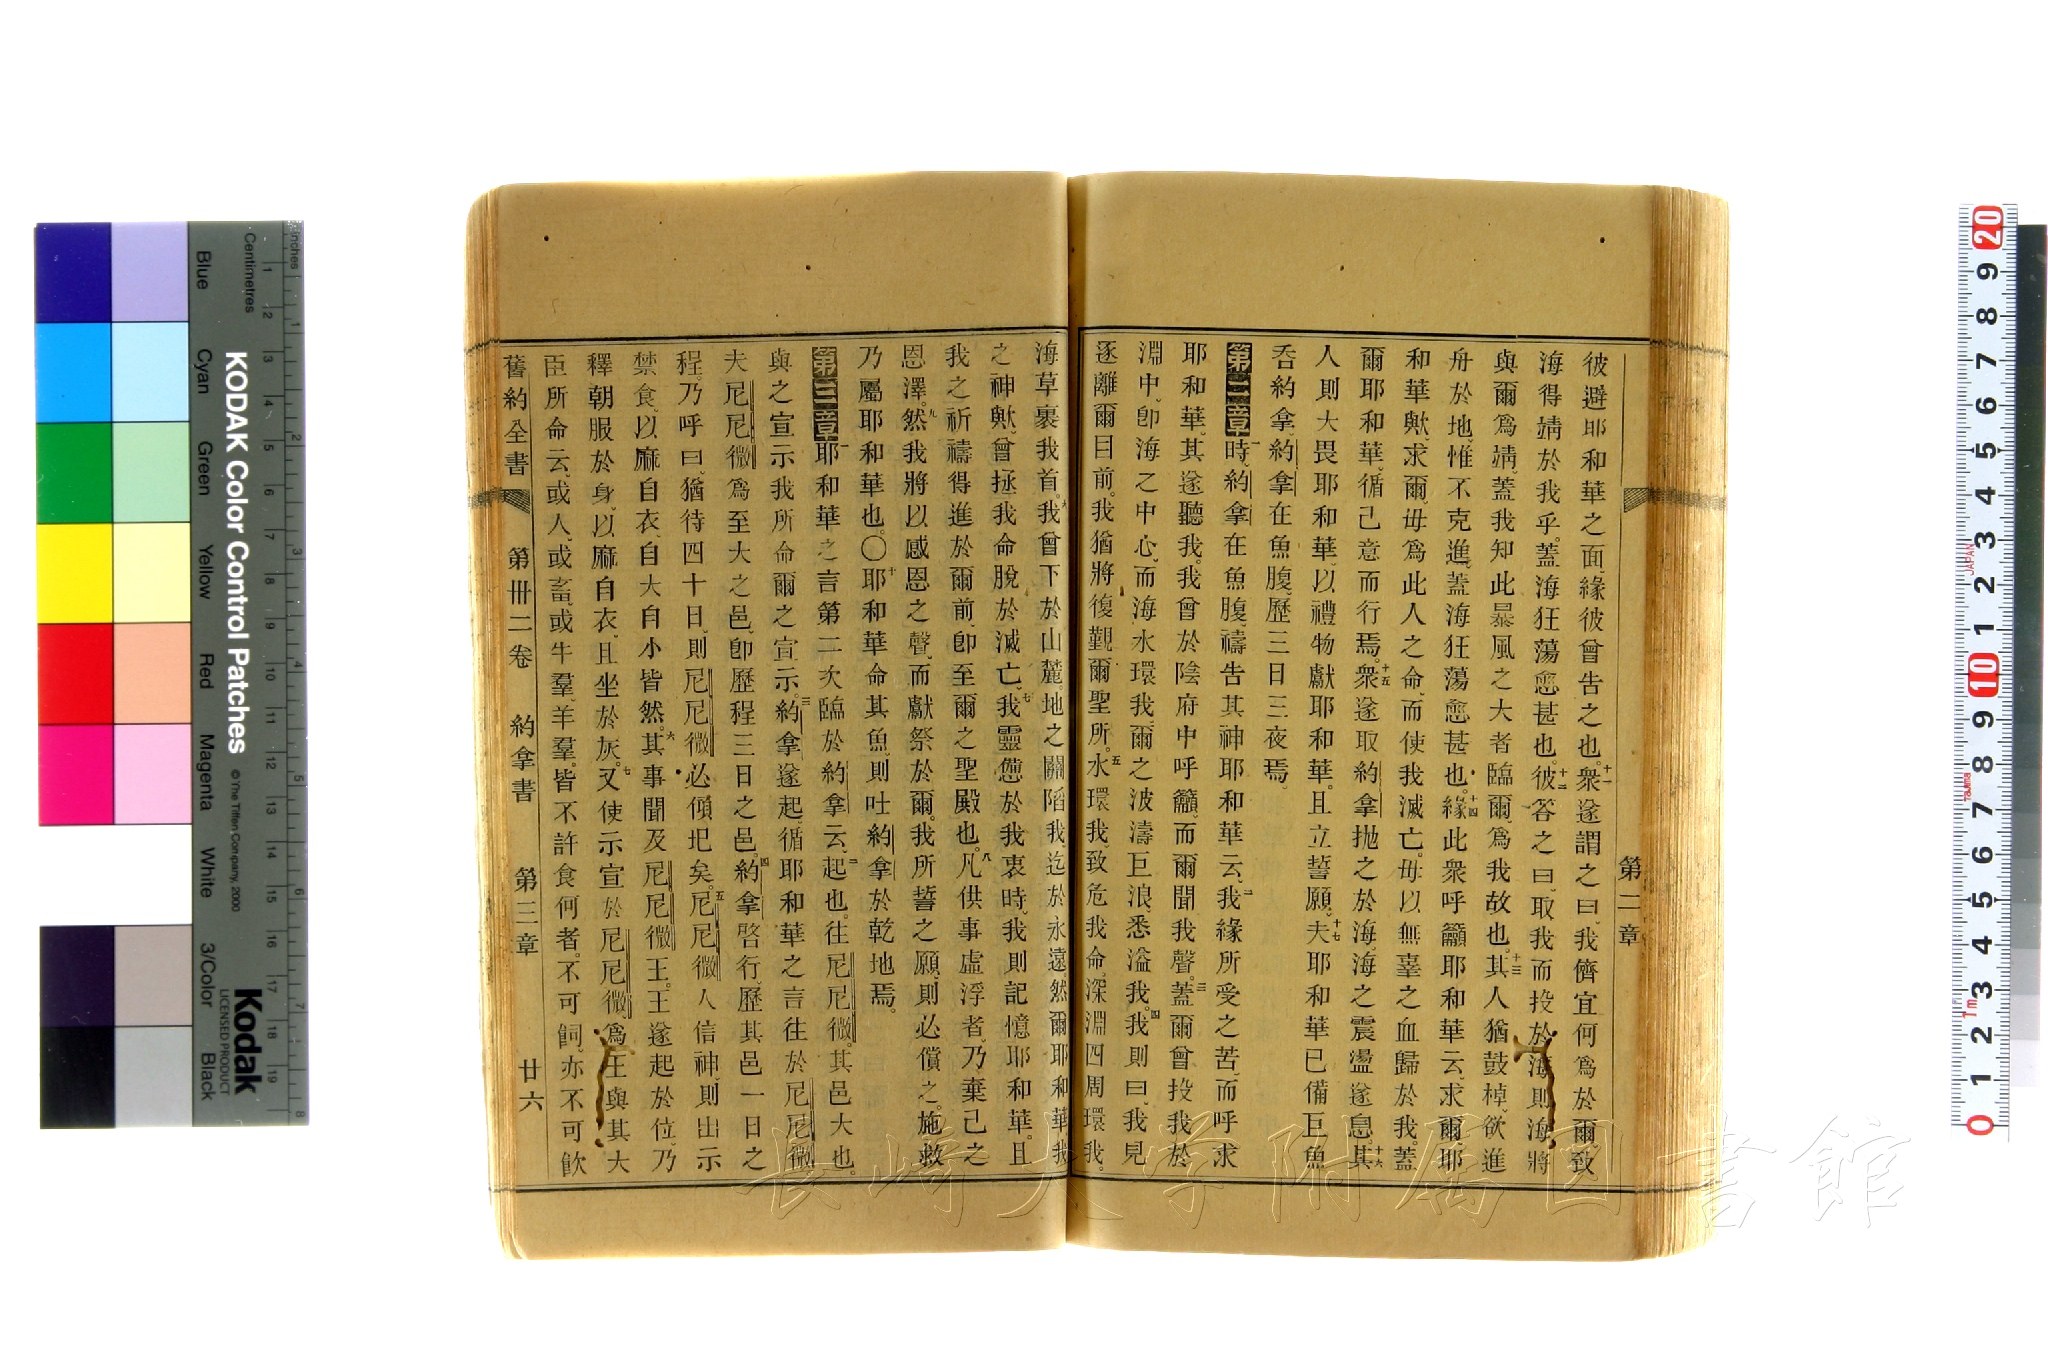 第二章
彼避耶和華之面、緣彼曾告之也。十一衆遂謂之曰、我儕宜何爲於爾、致
海得婧於我乎。蓋海狂蕩愈甚也。十二彼答之曰、取我而投於海、則海將
與爾爲婧、蓋我知此暴風之大者臨爾、爲我故也。十三其人猶鼓棹、欲進
舟於地、惟不克進、蓋海狂蕩愈甚也。十四緣此衆呼籲耶和華云、求爾、耶
和華歟、求爾、毋爲此人之命、而使我滅亡。毋以無辜之血歸於我。蓋
爾耶和華、循己意而行焉。十五衆遂取約拿抛之於海、海之震盪遂息。十六其
人則大畏耶和華、以禮物獻耶和華。且立誓願。十七夫耶和華已備巨魚
吞約拿、約拿在魚腹、歷三日三夜焉。
第二章一時、約拿在魚腹、禱告其神耶和華云、二我緣所受之苦而呼求
耶和華、其遂聽我。我曾於陰府中呼籲、而爾聞我聲。三蓋爾曾投我於
淵中、卽海之中心、而海水環我、爾之波濤巨浪、悉溢我。四我則曰、我見
逐離爾目前。我猶將復觀爾聖所。五水環我、致危我命、深淵四周環我。
海草裹我首。六我曾下於山麓。地之關陷我、迄於永遠。然爾耶和華、我
之神歟、曾拯我命脫於滅亡。七我靈憊於我衷時、我則記憶耶和華。且
我之祈禱得進於爾前、卽至爾之聖殿也。八凡供事虛浮者、乃棄己之
恩澤。九然我將以感恩之聲、而獻祭於爾。我所誓之願、則必償之。施救
乃屬耶和華也。〇十耶和華命其魚、則吐約拿於乾地焉。
第三章一耶和華之言第二次臨於約拿云、二起也、往尼尼微、其邑大也。
與之宣示我所命爾之宣示。三約拿遂起、循耶和華之言往於尼尼微、
夫尼尼微爲至大之邑、卽歷程三日之邑。四約拿啓行、歷其邑一日之
程。乃呼曰、猶待四十日、則尼尼微必傾圯矣。五尼尼微人信神、則出示
禁食、以麻自衣、自大自小皆然。六其事聞及尼尼微王。王遂起於位、乃
釋朝服於身、以麻自衣、且坐於灰。七又使示宣於尼尼微、爲王與其大
臣所命云、或人、或畜、或牛羣、羊羣、皆不許食何者。不可飼、亦不可飮
舊約全書 第卌二卷 約拿書 第三章 廿六
KODAK Color Control Patches
© The Tiffen Company, 2000
Kodak
LICENSED PRODUCT
Inches
Centimetres
Blue
Cyan
Green
Yellow
Red
Magenta
White
3/Color
Black
JAPAN
Tajima
1m
長崎大学附属図書館